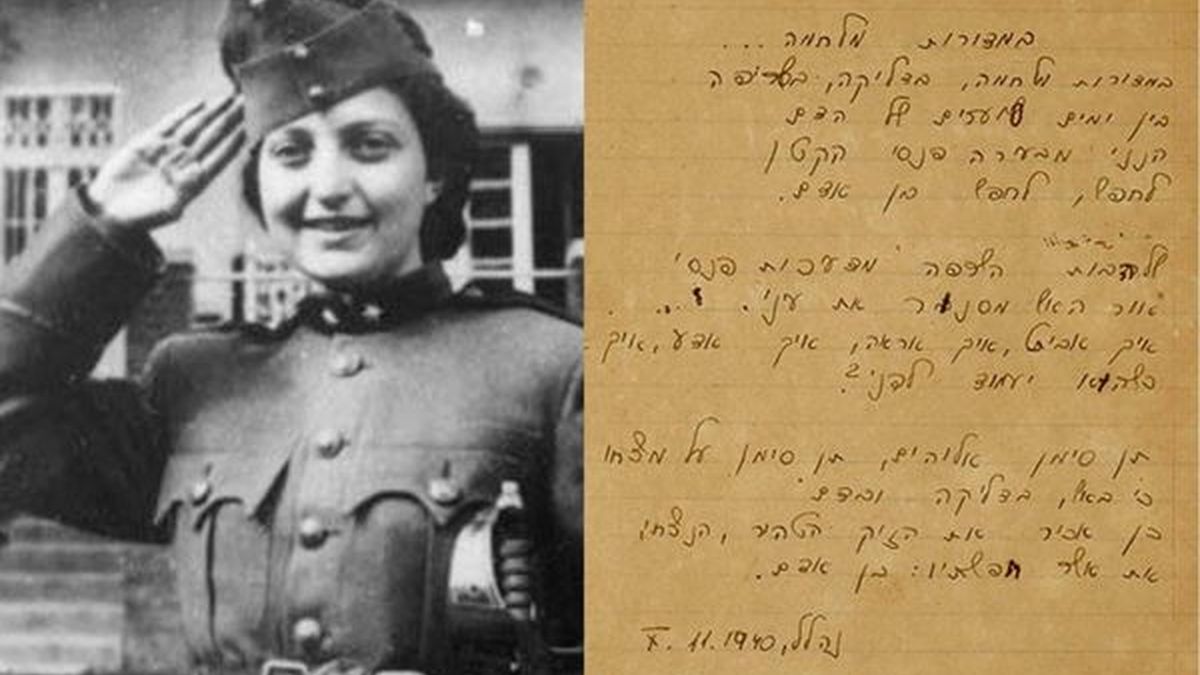 במדורות מלחמה...
במדורות מלחמה, בדליקה, בשריפה
בין ימים סוערים של הדם
הנני מבעירה פנסי הקטן
לחפש, לחפש בן אדם.
שלהבות השרפה מדעיכות פנסי
אוור האש מסנור את עיני. ...
איך אביט, איך אראה, איך אדע, איך
כשהוא יעמוד לפני?
תן סימן אלוהים, תן סימן על מצחו
כי באש, בדליקה ובדם
כן אכיר את הזיק הטהור, הנצחי,
את אשר חפשתיו: בן אדם.
נהלל, 11.1940.X